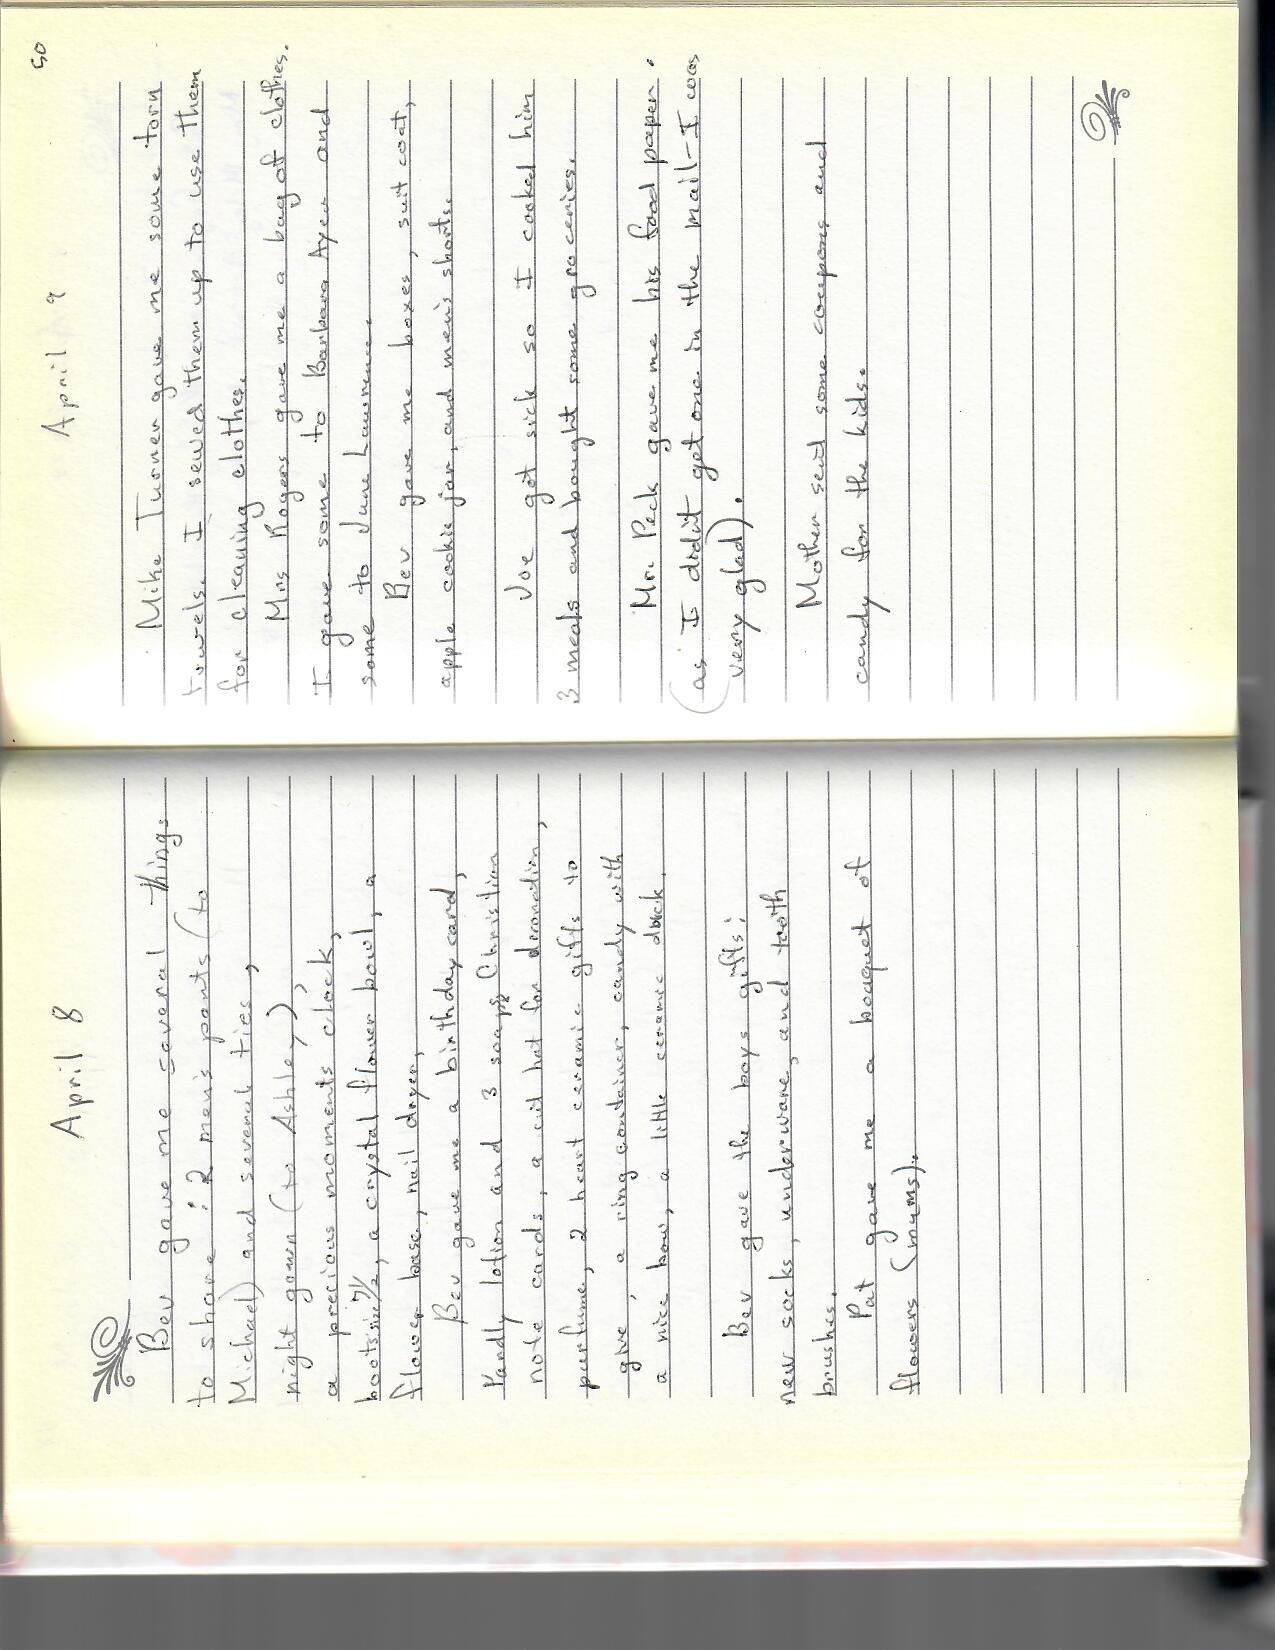 April 8
Bev gave me several things
to share : 2 men's pants (to
Michael) and several ties,
night gown (to Ashley),
a precious moments clock,
boots size 7½, a crystal flower bowl, a
flower base, nail dryer,
Bev gave me a birthday card,
Yardly lotion and 3 soaps, Christian
note cards, a cut hat for decoration,
purfume, 2 heart ceramic gifts to
give, a ring container, candy with
a nice bow, a little ceramic duck,
Bev gave the boys gifts:
new socks, underware, and tooth
brushes.
Pat gave me a bouquet of
flowers (mums).
50
April 9
Mike Turner gave me some torn
towels. I sewed them up to use them
for cleaning clothes.
Mrs Rogers gave me a bag of clothes.
I gave some to Barbara Ayer and
some to June Lawrence.
Bev gave me boxes, suit coat,
apple cookie jar, and men's shorts.
Joe got sick so I cooked him
3 meals and bought some groceries.
Mr. Peck gave me his food paper.
(as I didn't get one in the mail - I was
very glad).
Mother send some coupons and
candy for the kids.